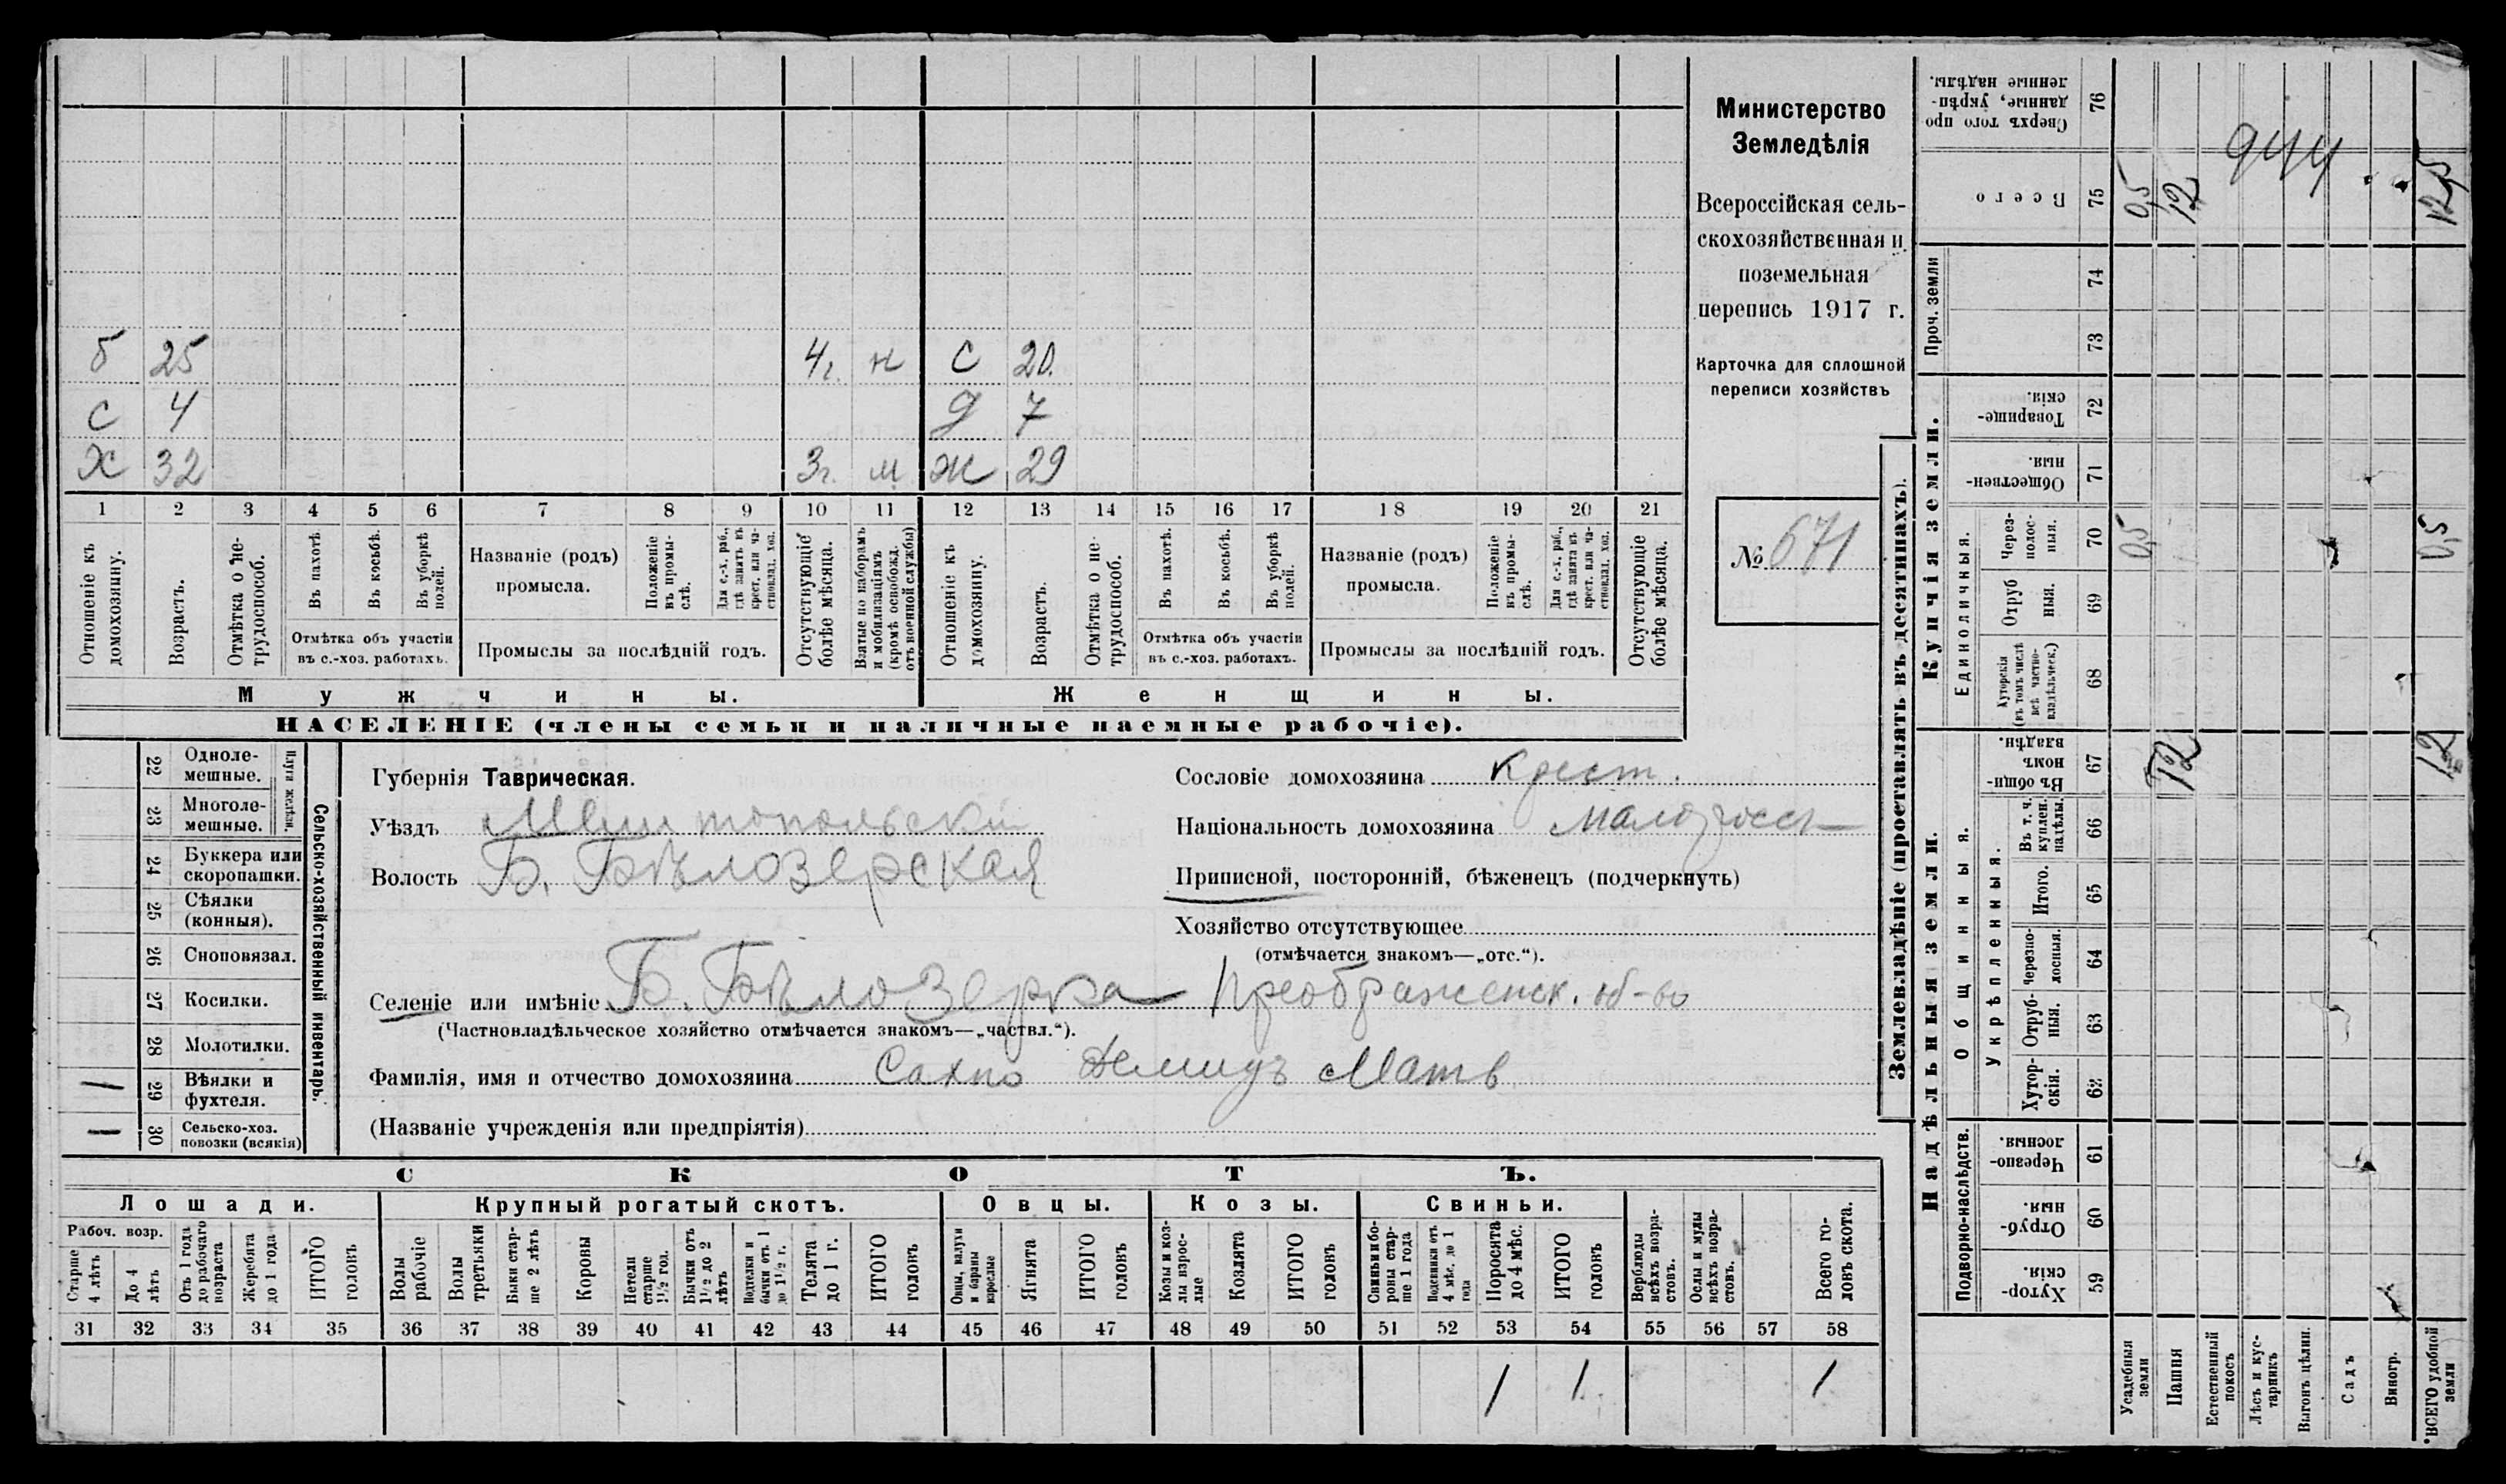 Министерство
Земледѣлія
Всероссійская сель-
скохозяйственная и
поземельная
перепись 1917 г.
Карточка для сплошной
переписи хозяйствъ
№ 671
б 25 4г. н С 20.
С 4 д 7
Х 32 3г. м Ж 29
1 2 3 4 5 6 7 8 9 10 11 12 13 14 15 16 17 18 19 20 21
Отношеніе къ домохозяину.
Возрастъ.
Отмѣтка о не-трудоспособ.
Въ пахотѣ.
Въ косьбѣ.
Въ уборкѣ полей.
Отмѣтка объ участіи
въ с.-хоз. работахъ.
Названіе (родъ)
промысла.
Положеніе въ промы-слѣ.
Для с.-х. раб., гдѣ занятъ въ крест. или ча-стновлад. хоз.
Промыслы за послѣдній годъ.
Отсутствующіе болѣе мѣсяца.
Взятые по наборамъ и мобилизаціямъ (кромѣ освобожд. отъ военной службы)
Отношеніе къ домохозяину.
Возрастъ.
Отмѣтка о не-трудоспособ.
Въ пахотѣ.
Въ косьбѣ.
Въ уборкѣ полей.
Отмѣтка объ участіи
въ с.-хоз. работахъ.
Названіе (родъ)
промысла.
Положеніе въ промы-слѣ.
Для с.-х. раб., гдѣ занята въ крест. или ча-стновлад. хоз.
Промыслы за послѣдній годъ.
Отсутствующіе болѣе мѣсяца.
Мужчины. Женщины.
НАСЕЛЕНІЕ (члены семьи и наличные наемные рабочіе).
Сельско-хозяйственный инвентарь.
Плуги желѣзн.
22 Одноле-мешные.
23 Многоле-мешные.
24 Буккера или скоропашки.
25 Сѣялки (конныя).
26 Сноповязал.
27 Косилки.
28 Молотилки.
1 29 Вѣялки и фухтеля.
1 30 Сельско-хоз. повозки (всякія)
Губернія Таврическая.
Уѣздъ Мелитопольскій
Волость Б. Бѣлозерская
Сословіе домохозяина крест.
Національность домохозяина малоросс
Приписной, посторонній, бѣженецъ (подчеркнуть)
Хозяйство отсутствующее
(отмѣчается знакомъ—„отс.“).
Селеніе или имѣніе Б. Бѣлозерка Преображенск. об-во
(Частновладѣльческое хозяйство отмѣчается знакомъ—„частвл.“).
Фамилія, имя и отчество домохозяина Сахно Демидъ Матв
(Названіе учрежденія или предпріятія)
СКОТЪ.
Лошади. Крупный рогатый скотъ. Овцы. Козы. Свиньи.
Рабоч. возр.
Старше 4 лѣтъ
До 4 лѣтъ
Отъ 1 года до рабочаго возраста
Жеребята до 1 года
ИТОГО головъ
Волы рабочіе
Волы третьяки
Быки стар-ше 2 лѣтъ
Коровы
Нетели старше 1½ год.
Бычки отъ 1½ до 2 лѣтъ
Нетелки и бычки отъ 1 до 1½ г.
Телята до 1 г.
ИТОГО головъ
Овцы, валухи и бараны взрослые
Ягнята
ИТОГО головъ
Козы и коз-лы взрос-лые
Козлята
ИТОГО головъ
Свиньи и бо-ровы стар-ше 1 года
Подсвинки отъ 4 мѣс. до 1 года
Поросята до 4 мѣс.
ИТОГО головъ
Верблюды всѣхъ возра-стовъ.
Ослы и мулы всѣхъ возра-стовъ.
Всего го-ловъ скота.
31 32 33 34 35 36 37 38 39 40 41 42 43 44 45 46 47 48 49 50 51 52 53 54 55 56 57 58
1 1 1
Землевладѣніе (проставлять въ десятинахъ).
Надѣльныя земли.
Купчія земли.
Проч. земли
Подворно-наслѣдств.
Общинныя.
Укрѣпленныя.
Единоличныя.
Хутор-скія. 59
Отруб-ныя. 60
Черезпо-лосныя. 61
Хутор-скія. 62
Отруб-ныя. 63
Черезпо-лосныя. 64
Итого. 65
Въ т. ч. куплен. надѣлы. 66
Въ общин-номъ владѣн. 67
Хуторскія (въ томъ числѣ всѣ частно-владѣльческ.) 68
Отруб ныя. 69
Через-полос-ныя. 70
Обществен-ныя. 71
Товарище-скія. 72
73
74
Всего 75
Сверхъ того про данные, укрѣп-ленные надѣлы. 76
Усадебныя земли 0,5 0,5
Пашня 12 12
Естественный покосъ
Лѣсъ и кус-тарникъ
Выгонъ цѣлин.
Садъ
Виногр.
*ВСЕГО удобной земли 12 0,5 12,5
944